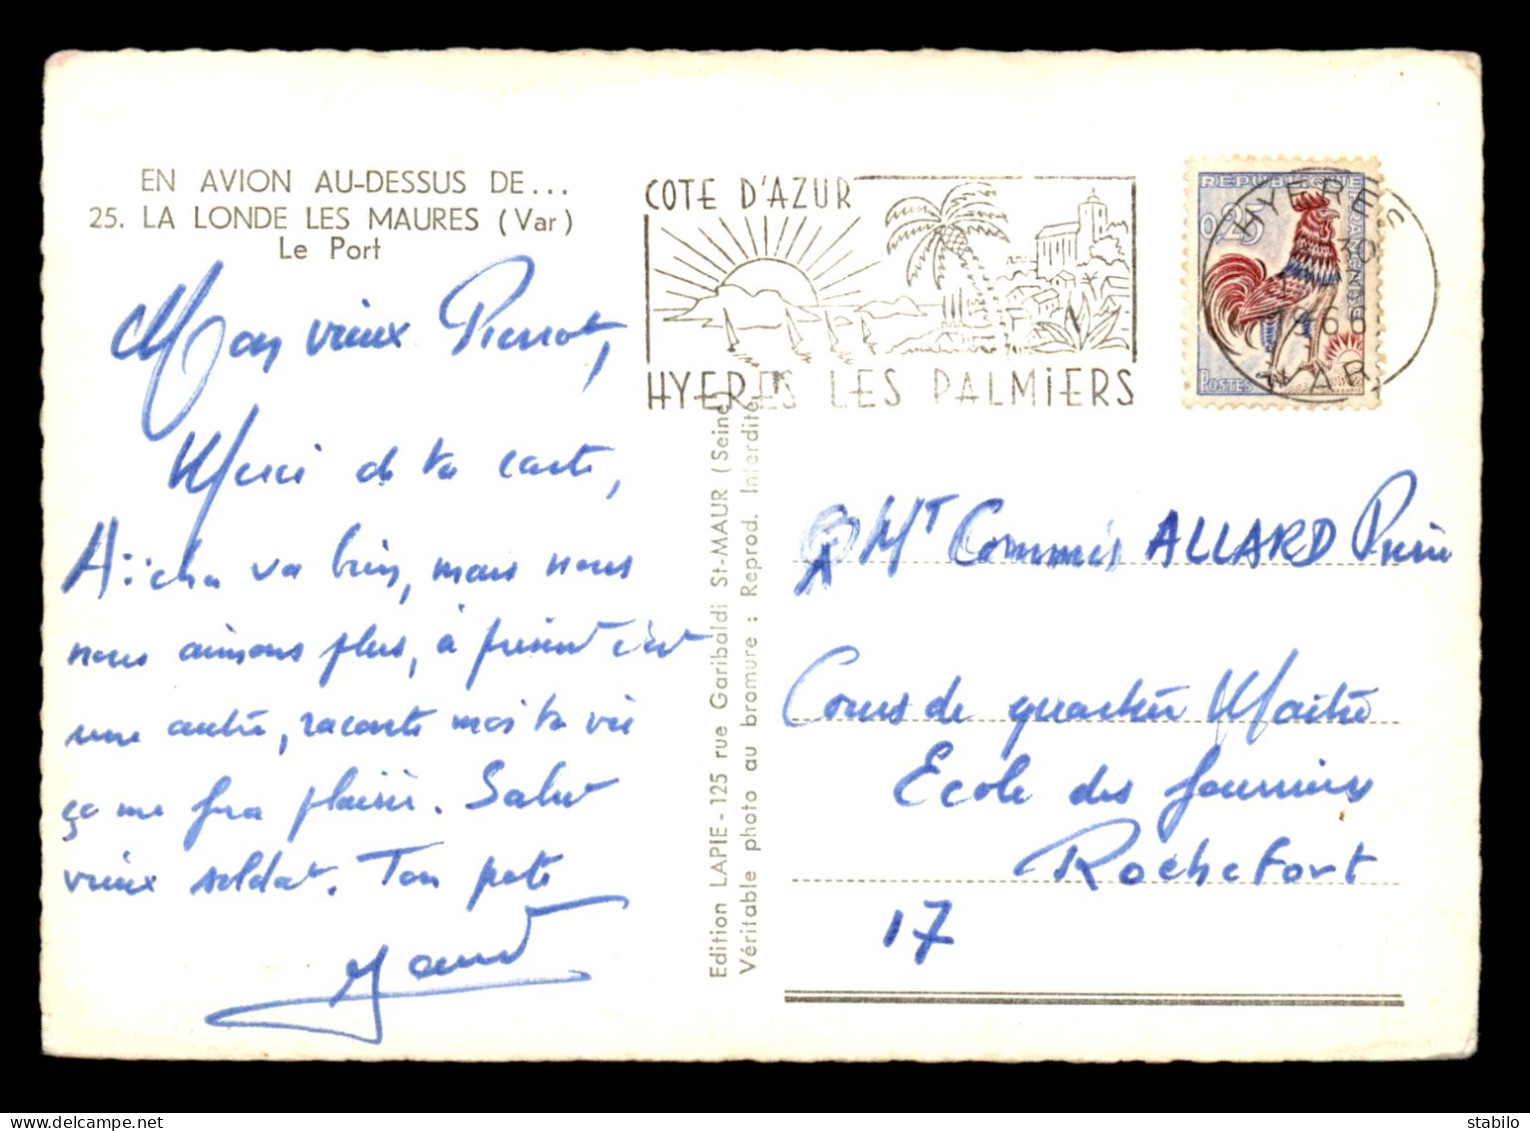 EN AVION AU-DESSUS DE...
25. LA LONDE LES MAURES (Var)
Le Port
Mon vieux Pierrot,
Merci de ta carte,
Aïcha va bien, mais nous
nous aimons plus, à présent c'est
une autre, raconte moi ta vie
ça me fera plaisir. Salut
vieux soldat. Ton pote
Edition LAPIE - 125 rue Garibaldi St-MAUR (Seine)
Véritable photo au bromure : Reprod. Interdite
COTE D'AZUR
HYERES LES PALMiERS
REPUBLIQUE FRANCAISE
0,25
POSTES
HYERES
30
1966
VAR
QMT Commis ALLARD Pierre
Cours de quartier Maitre
Ecole des fourriers
Rochefort
17
stabilo69.delcampe.net